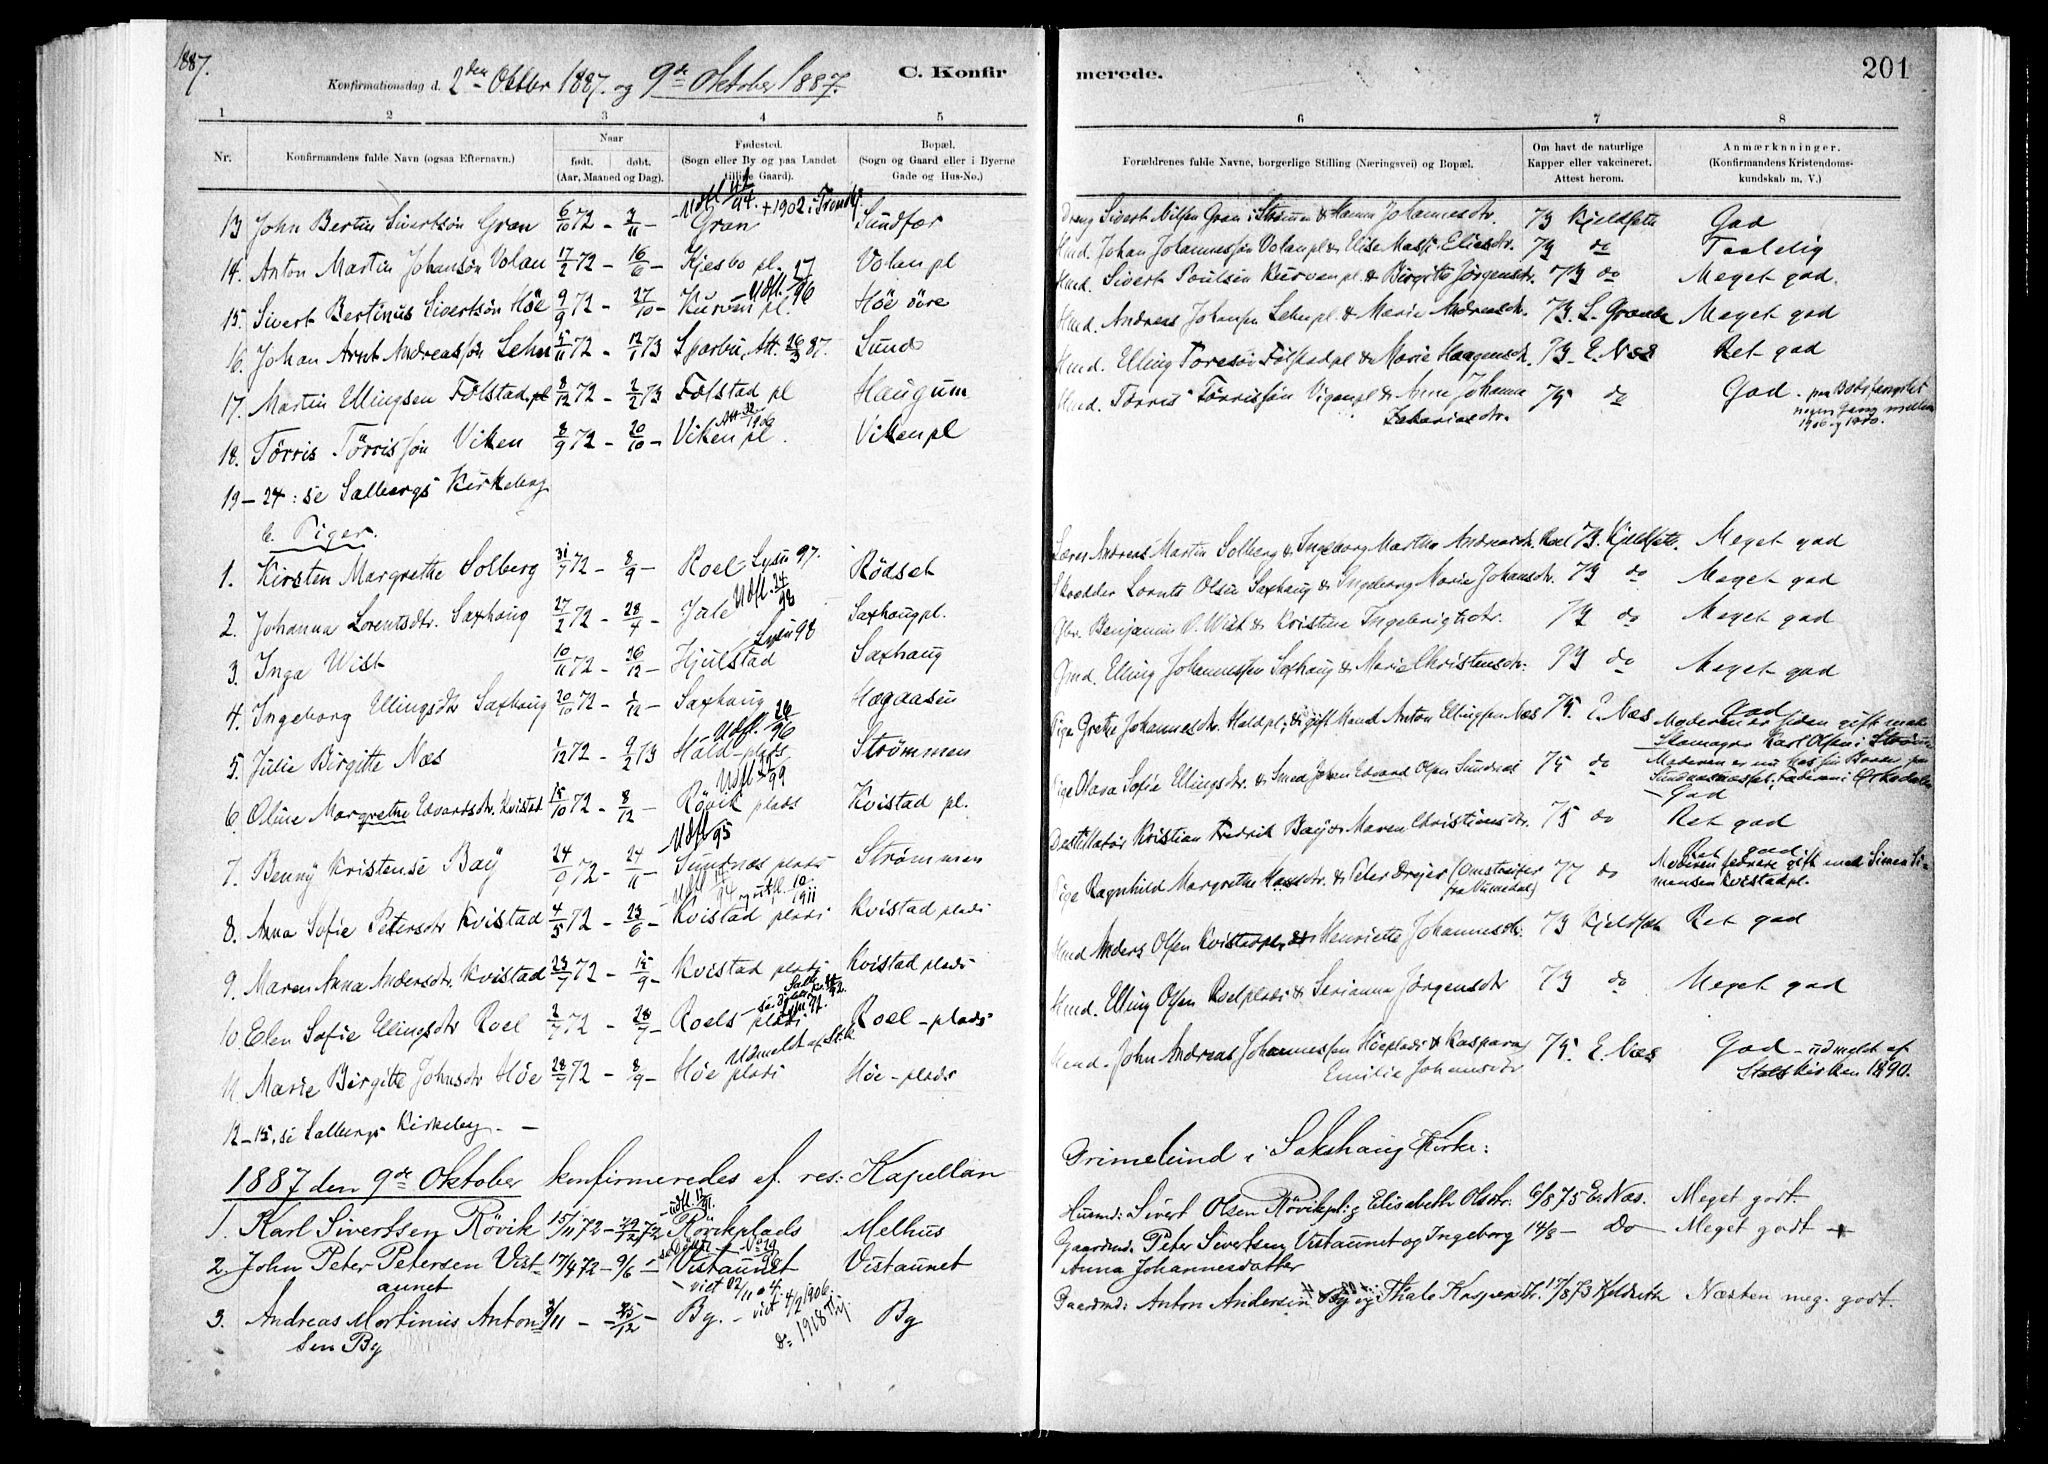 1887.
Konfirmationsdag d. 2den Oktbr 1887. og 9de Oktober 1887.
C. Konfir
merede.
201
1 2 3 4 5
6 7 8
Nr.
Konfirmandens fulde Navn (ogsaa Efternavn.)
Naar
født. døbt.
(Aar, Maaned og Dag).
Fødested.
(Sogn eller By og paa Landet
tillige Gaard).
Bopæl.
(Sogn og Gaard eller i Byerne
Gade og Hus-No.)
Forældrenes fulde Navne, borgerlige Stilling (Næringsvei) og Bopæl.
Om havt de naturlige
Kapper eller vakcineret.
Attest herom.
Anmærkninger.
(Konfirmandens Kristendoms-
kundskab m. V.)
13 John Bertin Sivertsön Gran 6/10 72 - 3/11 - Gran Sundfær
Udfl. + 1902 i Trondhj.
Sivert Nilsen Gran i Strömm & Hanna Johannesdr. 73 Kjeldseth God
14. Anton Martin Johansön Volan 17/2 72 - 16/6 - Kjesbo pl. Volan pl
Hmd. Johan Johannessön Volan pl & Elise Eliasdr. 73 do Taalelig
15. Sivert Bertinus Sivertsön Höe 9/9 72 - 27/10 - Kurven pl. Höe öire
Udfl. 17/96
Hmd. Sivert Poulsen Kurvan pl. & Birgitte Jörgensdr. 73 do Meget god.
16. Johan Arnt Andreassön Lehn 5/11 72 - 12/1 73 Sparbu, Att. 26/3 87. Sund
Hmd. Andreas Johansen Lehn pl & Marie Andreasdr. 73. Meget god
17. Martin Ellingsen Fölstad pl 8/12 72 - 2/2 73 Fölstad pl Haugum
Hmd. Elling Toresön Fölstad pl & Marie Haagensdr. 73 - E. Næs Ret god
18. Törris Törrissön Viken 8/9 72 - 20/10 - Viken pl. Viken pl
Att 1906
Hmd. Törris Törrissön Vigan pl & Anne Johanna Zakariasdr. 75 do God - paa Bodsfængslet
nogen Gang mellem
1906 og 1910.
19 - 24 : se Salbergs Kirkebog
b. Piger.
1. Kirsten Margrethe Solberg 31/7 72 - 8/9 - Roel Rödset
Lysn 97.
Lærer Andreas Martin Solberg & Ingeborg Martha Andreasdr. Roel 73. Kjeldseth. Meget god
2. Johanna Lorentsdtr. Saxhaug 27/2 72 - 28/4 - Jule Saxhaug pl.
Udfl. 24/98
Skrædder Lornts Olsen Saxhaug & Ingeborg Marie Johansdr. 73 do Meget god
3. Inga Wist 10/11 72 - 26/12 - Hjulstad Saxhaug
Lysn 98
Gbr. Benjamin O. Wist & Kristine Ingebrigtsdr. 73 do Meget god
4. Ingeborg Ellingsdtr Saxhaug 20/10 72 - 1/12 - Saxhaug Hegaasen
Gmd. Elling Johannessen Saxhaug & Marie Christensdr. 73 do Meget god
5. Julie Birgitte Næs 1/12 72 - 9/2 73 Hald-plads Strömmen
Udfl. 26/96
Pige Grethe Johannesdr. Hald pl. & gift Mand Anton Ellingsen Næs 75. E. Næs God
Moderen er siden gift med
Skomager Karl Olsen i Strömm
6. Oline Margrethe Edvardsdr. Kvistad 15/10 72 - 8/12 - Rövik plads Kvistad pl.
Udfl /99
Pige Olava Sofie Ellingsdtr. & Smed Johan Edvard Olsen Sundnæs 75 do Moderen er nu hos sin Broder paa
Sundnæsnæsset, Faderen i Orkedalen
- God
7. Benny Kristense Bay 24/9 72 - 24/11 - Sundnæs plads Strömmen
Udfl /95
Destillatör Kristian Fredrik Bay & Maren Christiansdr. 75 do Ret god
8. Anna Sofie Petersdr Kvistad 4/5 72 - 23/6 - Kvistad plads Kvistad plads
Udfl 94 10. 1911
Pige Ragnhild Margrethe Hansdr. & Peter Drejer (Omstreifer
fra Numedal) 77 do Ret god
Moderen senere gift med Simen Si-
mensen Kvistad pl.
9. Maren Anna Andersdr. Kvistad 23/7 72 - 15/9 - Kvistad plads Kvistad plads
Hmd Anders Olsen Kvistad pl. & Henriette Johannesdr. 73 Kjeldseth Ret god
10. Elen Sofie Ellingsdtr Roel 2/7 72 - 28/7 - Roels plads Roel - plads
Hmd. Elling Olsen Roelplads & Serianna Jörgensdr 73 do Meget god
11. Marie Birgitte Johnsdr Höe 28/7 72 - 8/9 - Höe plads Höe - plads
Udmeldt af St.k.
Hmd. John Andreas Johannessen Höeplads & Kaspara
Emilie Johansdr 75. E. Næs God - udmeldt af
Statskirken 1890.
12 - 15, se Salbergs Kirkebog. -
1887 den 9de Oktober konfirmeredes af res: Kapellan
Grimelund i Sakshaug Kirke:
1. Karl Sivertsen Rövik 15/11 72 - 29/12 72 Rövikplads Melhus
udfl. 13/91.
Husmd: Sivert Olsen Rövikpl. og Elisabeth Olsdtr. 6/8 75 E. Næs. Meget godt.
2. John Peter Petersen Vist-
aunet 17/4 72 - 9/6 - Vistaunet Vistaunet
- viet 02/11 04.
Gaardmd. Peter Sivertsen Vistaunet og Ingeborg
Anna Johannesdatter 14/8 - Do Meget godt -
3. Andreas Martinius Anton-
sen By 3/11 - 25/12 - By. By
- viet 4/2 1906.
d: 1918
Gaardmd: Anton Andersen By og Thale Kaspersdtr. 17/8 73 Keldseth Næsten meg. godt.